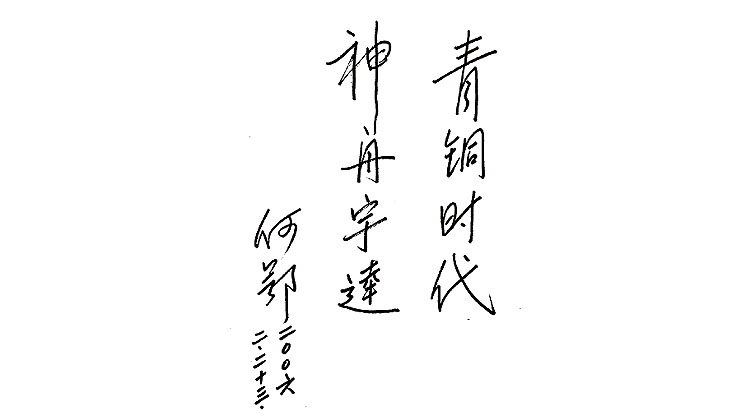 青铜时代
神舟宇達
何鄂
二〇〇六
二·二十三·